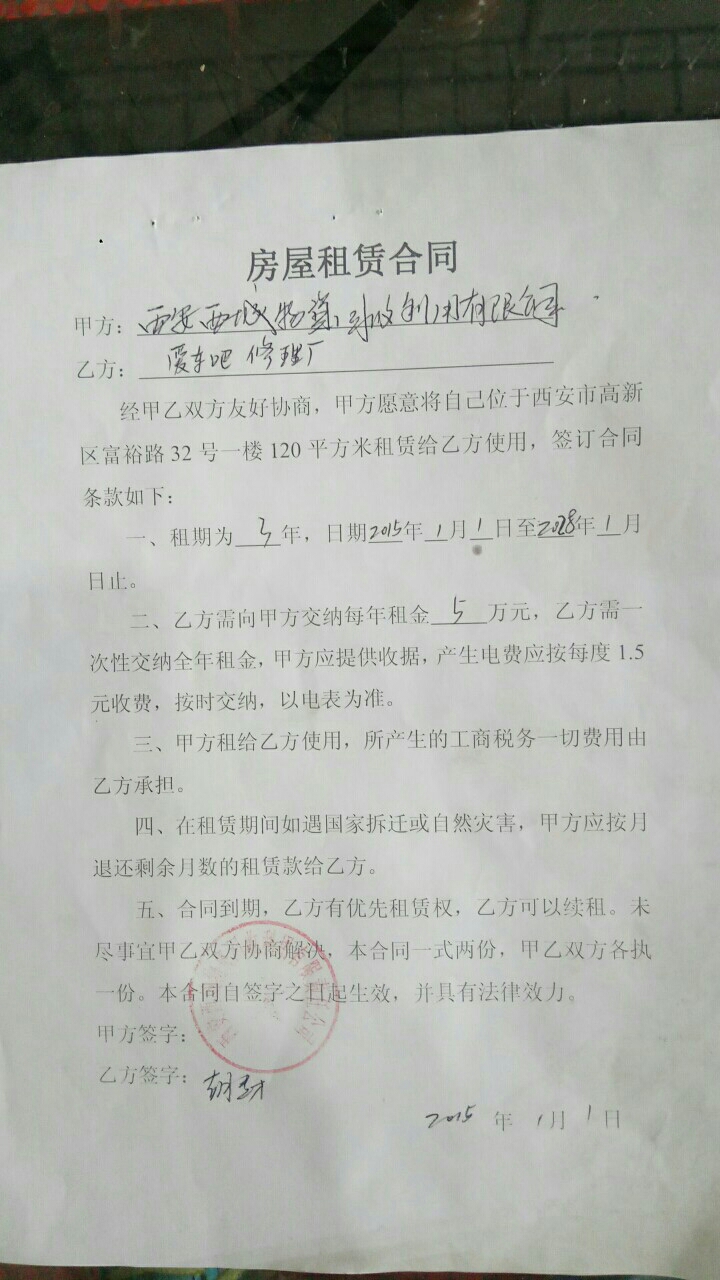 房屋租赁合同
甲方：西安西城物资回收利用有限公司
乙方：爱车吧修理厂
经甲乙双方友好协商，甲方愿意将自己位于西安市高新
区富裕路32号一楼120平方米租赁给乙方使用，签订合同
条款如下：
一、租期为3年，日期2015年1月1日至2018年1月
日止。
二、乙方需向甲方交纳每年租金5万元，乙方需一
次性交纳全年租金，甲方应提供收据，产生电费应按每度1.5
元收费，按时交纳，以电表为准。
三、甲方租给乙方使用，所产生的工商税务一切费用由
乙方承担。
四、在租赁期间如遇国家拆迁或自然灾害，甲方应按月
退还剩余月数的租赁款给乙方。
五、合同到期，乙方有优先租赁权，乙方可以续租。未
尽事宜甲乙双方协商解决，本合同一式两份，甲乙双方各执
一份。本合同自签字之日起生效，并具有法律效力。
甲方签字：
乙方签字：
2015年1月1日